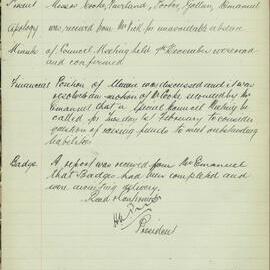 Present Messrs Cooke, Fairland, Foster, Emanuel
Apology was received from Mr Pick for unavoidable absence
Minutes of Council Meeting held 7th December were read
and confirmed
Financial Position of Union was discussed and it was
resolved on motion of Mr Cooke seconded by Mr
Emanuel that a Special Council Meeting be
called for Tuesday 1st February to consider
question of raising funds to meet outstanding
liabilities
Badge. A report was received from Mr Emanuel
that Badge had been completed and
were awaiting delivery.
Read & Confirmed
President